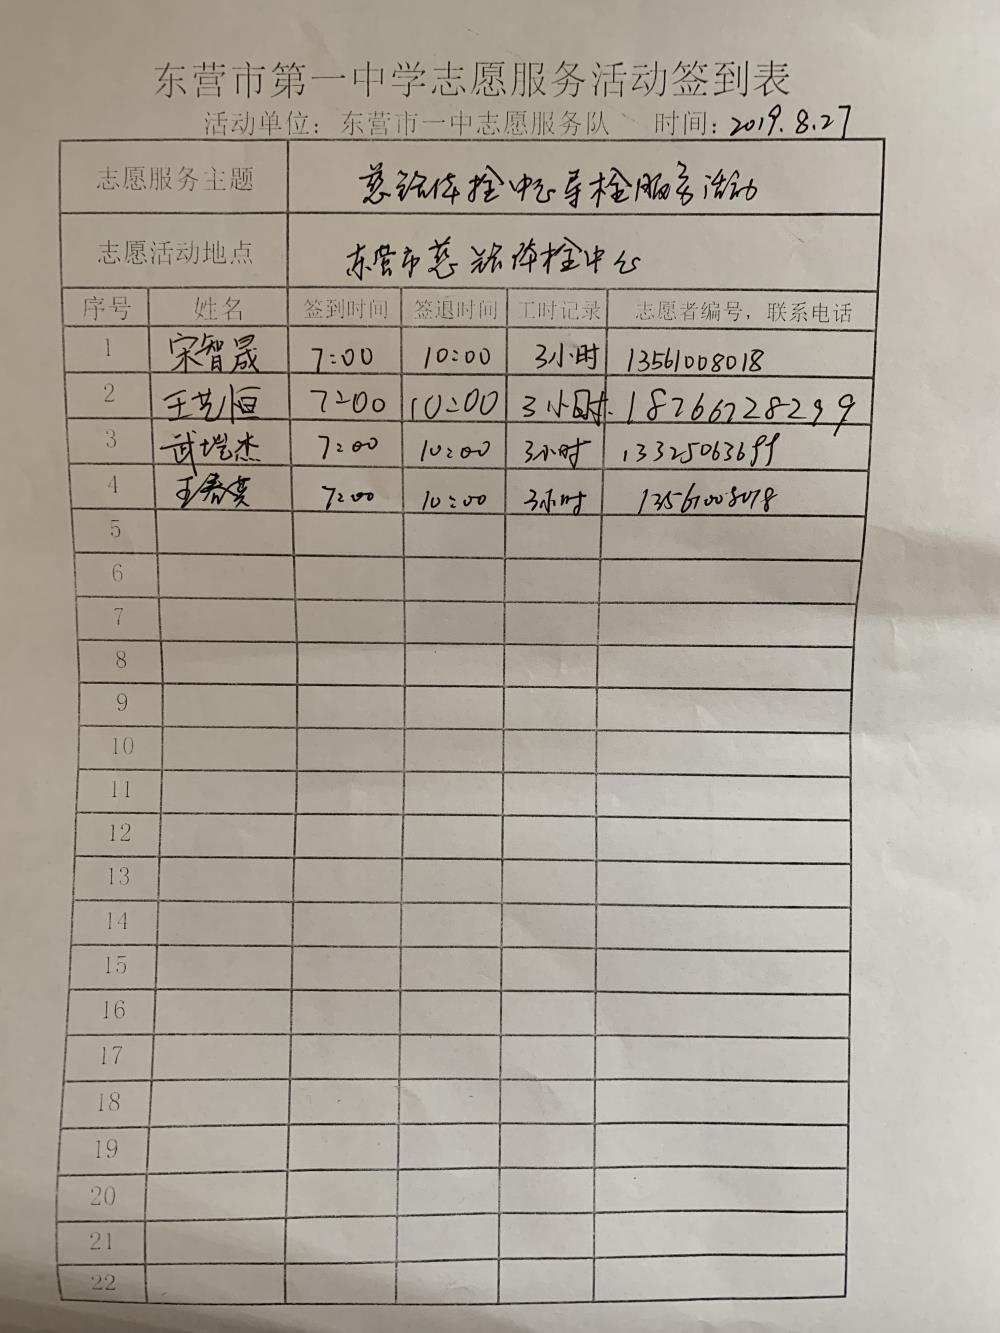 东营市第一中学志愿服务活动签到表
活动单位：东营市一中志愿服务队 时间：2019.8.27
志愿服务主题 慈铭体检中心导检服务活动
志愿活动地点 东营市慈铭体检中心
序号 姓名 签到时间 签退时间 工时记录 志愿者编号，联系电话
1 宋智晟 7:00 10:00 3小时 13561008018
2 王艺恒 7:00 10:00 3小时. 18766728299
3 武垲杰 7:00 10:00 3小时 13325063699
4 王春英 7:00 10:00 3小时 13561008018
5
6
7
8
9
10
11
12
13
14
15
16
17
18
19
20
21
22